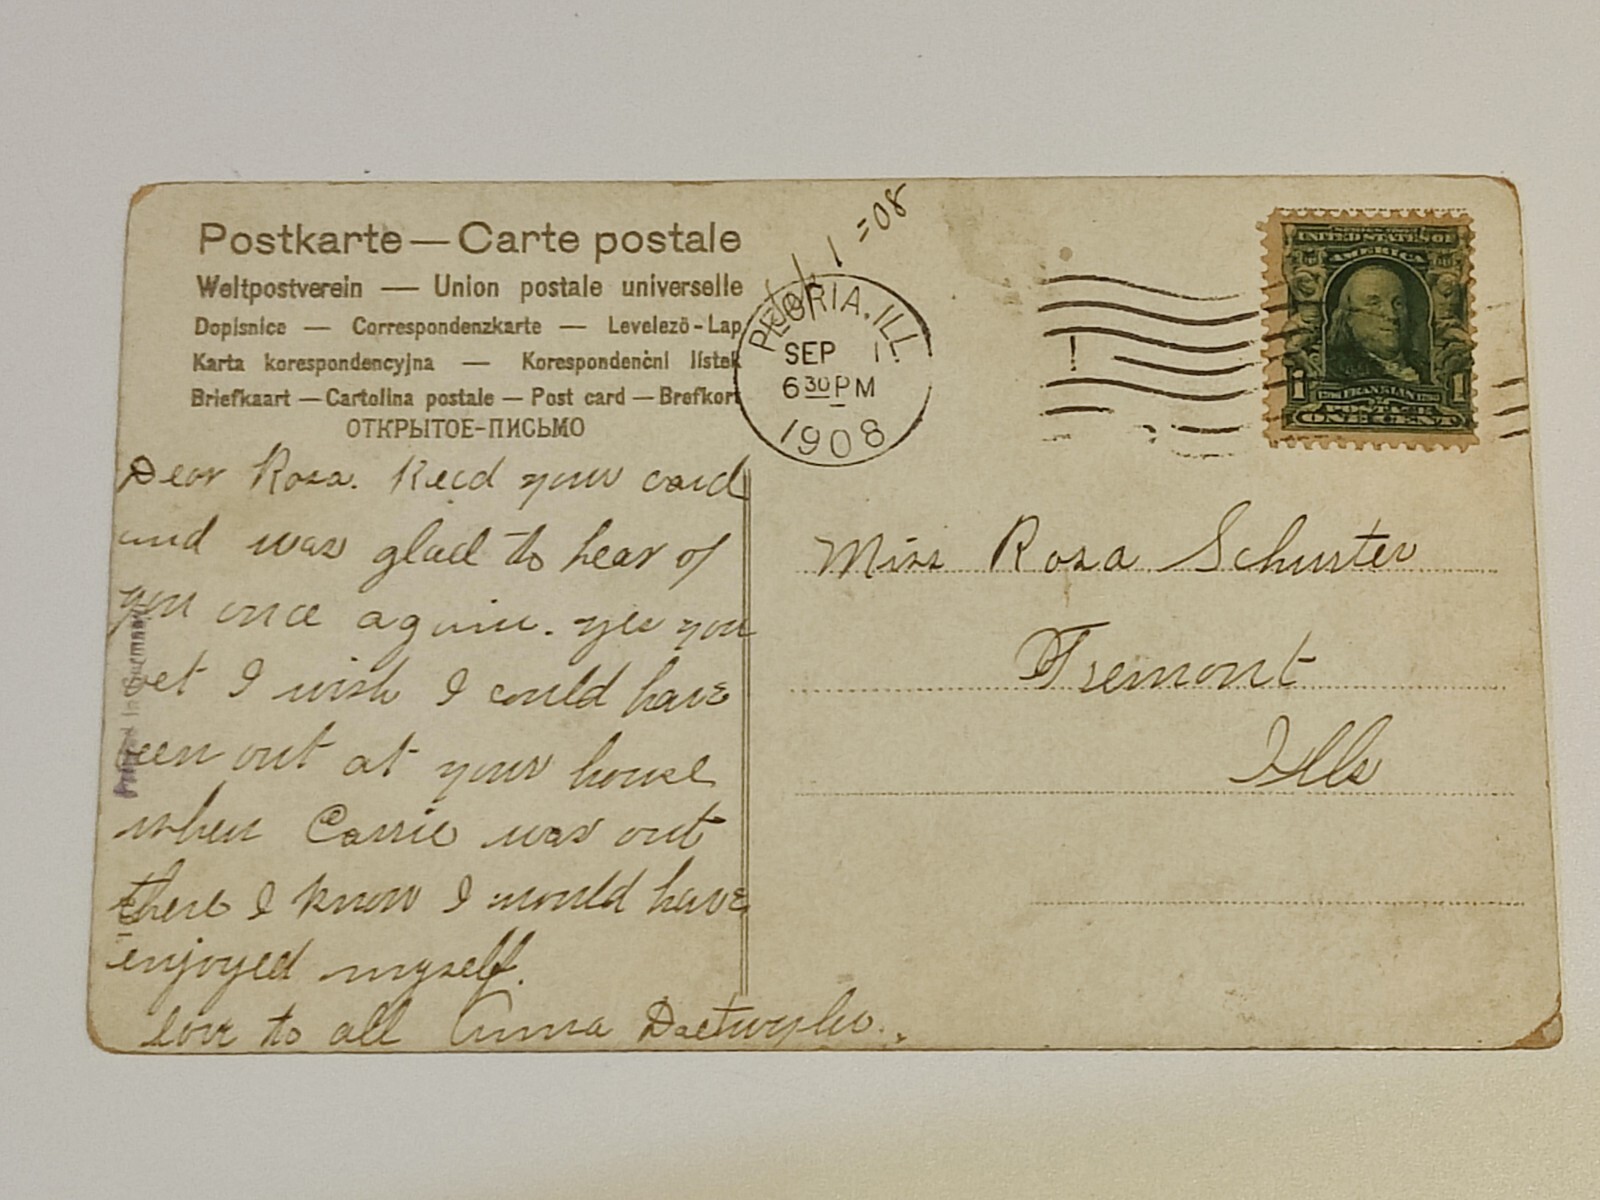 Postkarte — Carte postale
Weltpostverein — Union postale universelle
Dopisnice — Correspondenzkarte — Levelező-Lap
Karta korespondencyjna — Korespondenční lístek
Briefkaart — Cartolina postale — Post card — Brefkort
ОТКРЫТОЕ-ПИСЬМО
1 = 08
PEORIA, ILL.
SEP 1
6 30 PM
1908
UNITED STATES OF
AMERICA
FRANKLIN
1 1
POSTAGE
ONE CENT
Dear Rosa. Recd your card
and was glad to hear of
you once again. yes you
bet I wish I could have
been out at your house
when Carrie was out
there I know I would have
enjoyed myself.
Love to all Anna
Miss Rosa Schuster
Tremont
Ills
Printed in Germany